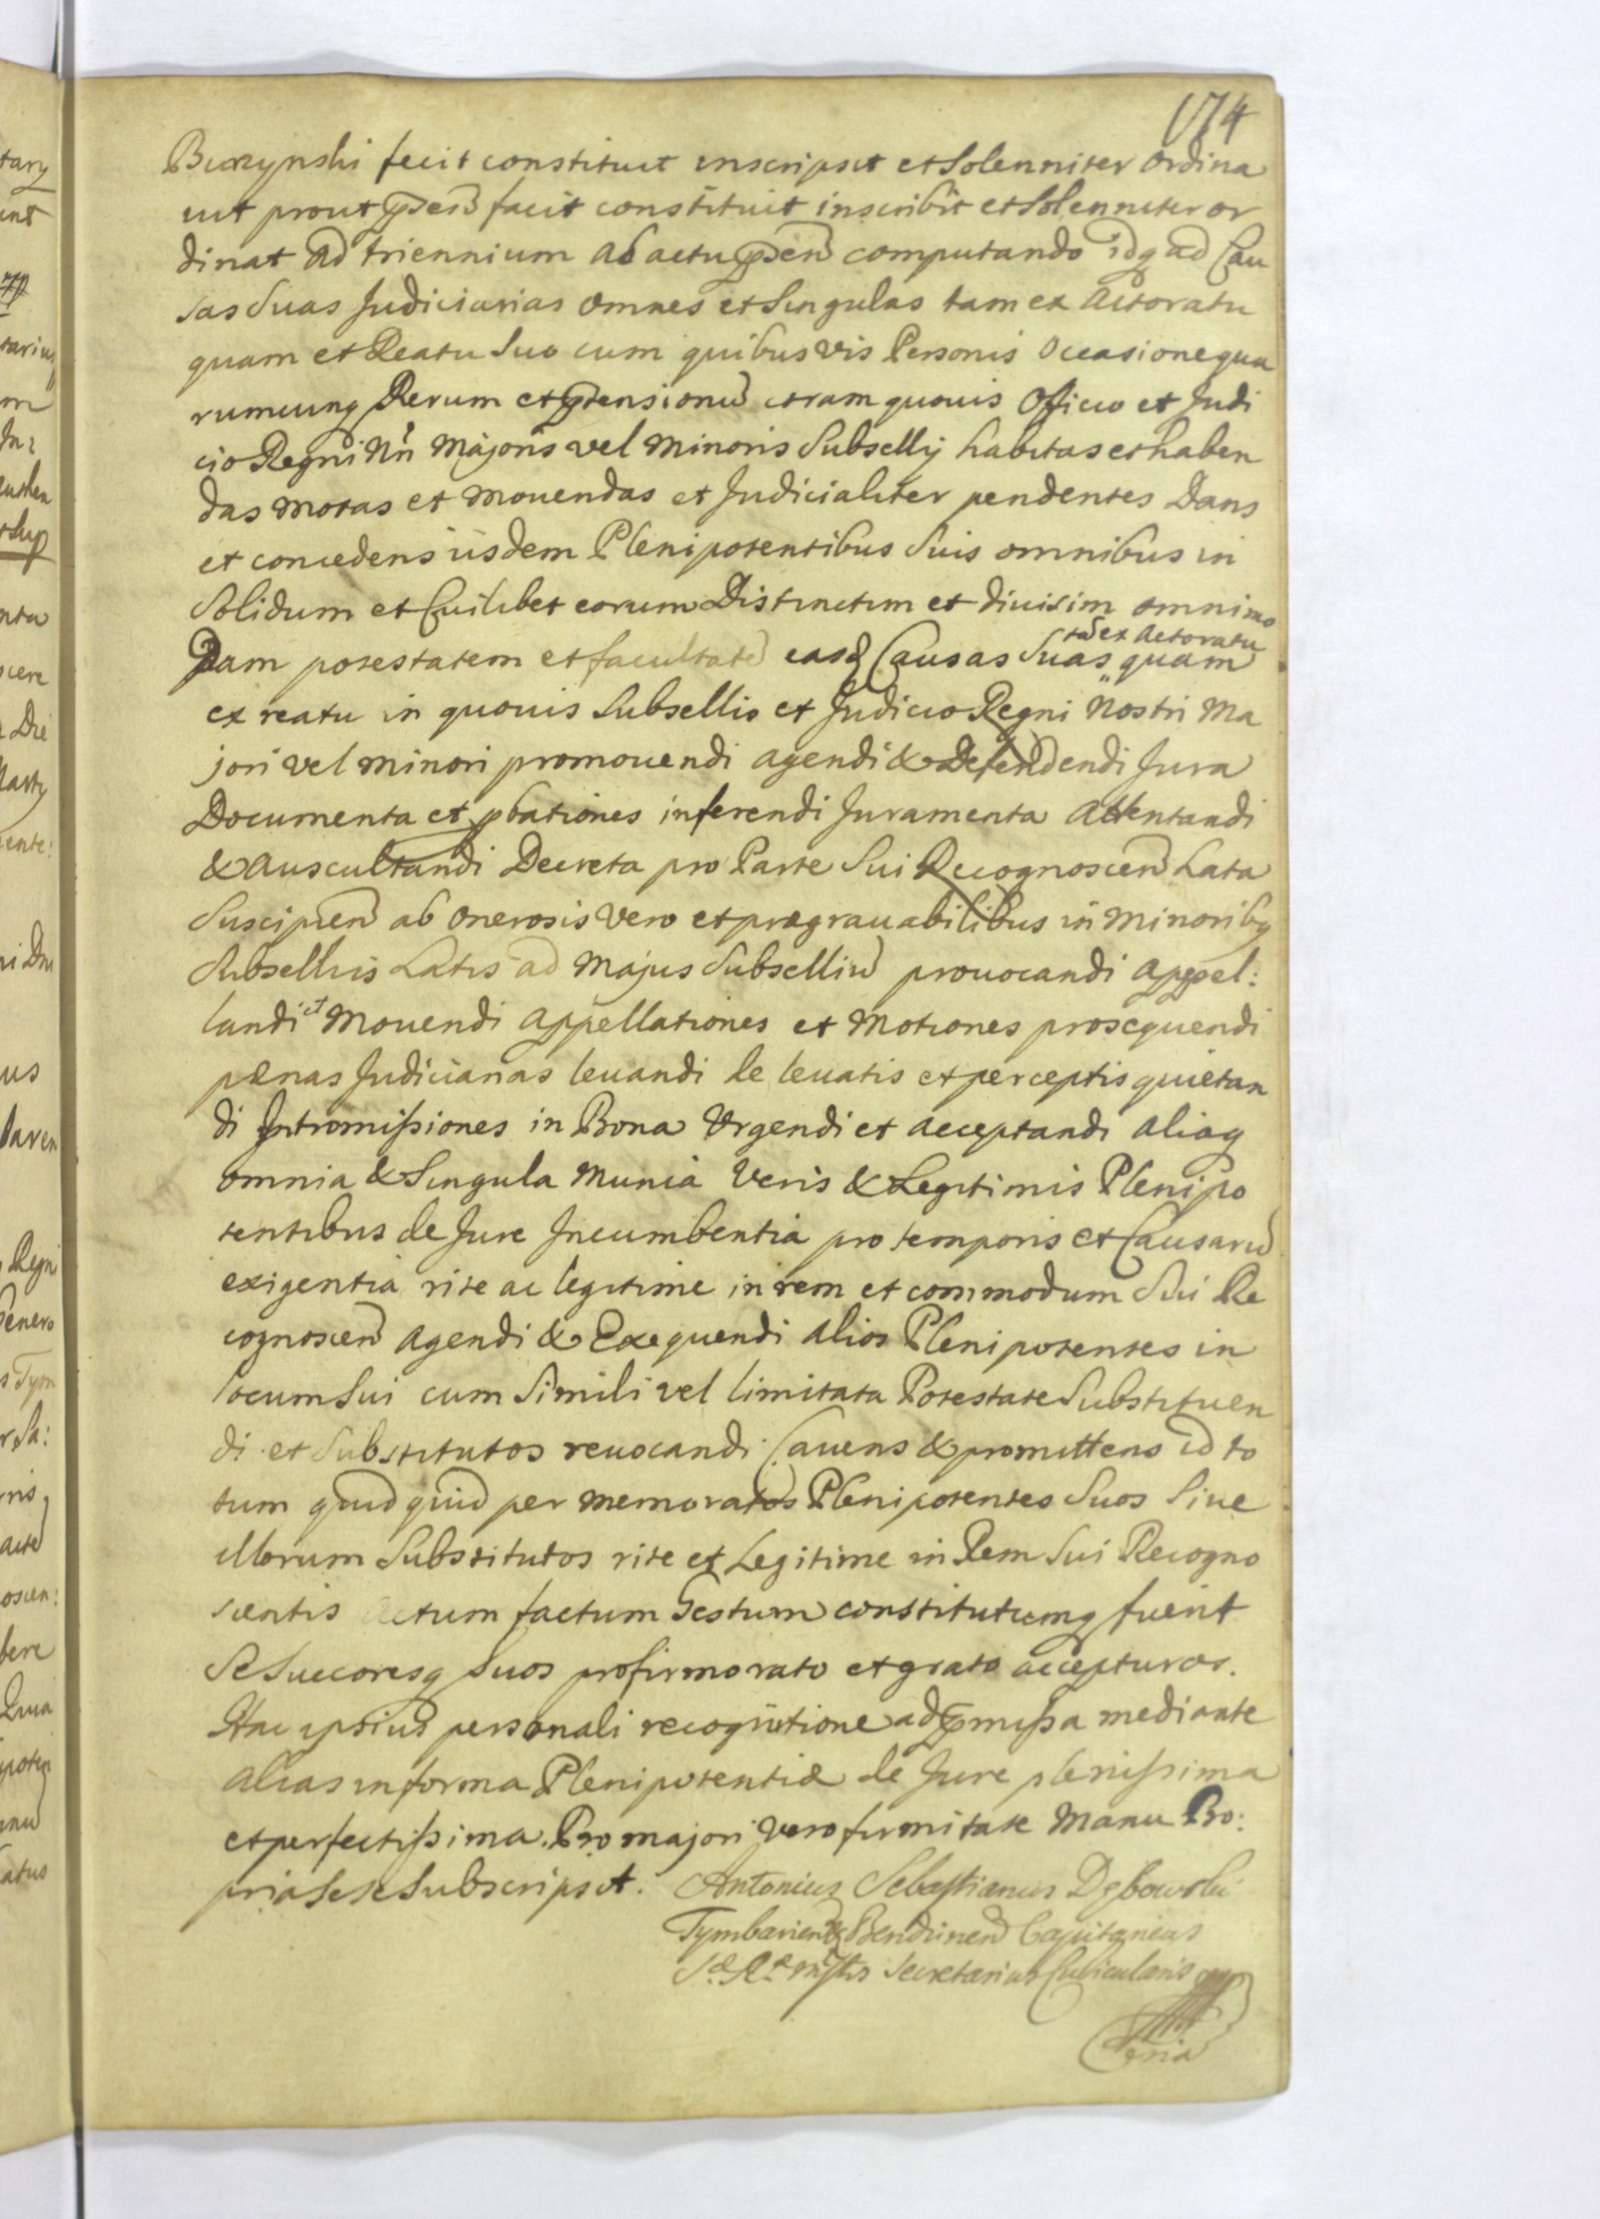 174
Burzynski fecit constituit inscripsit et Solenniter Ordina
uit prout pñsen facit constituit inscribit et Solenniter or
dinat ad triennium ab actu pñsen computando idq ad Cau
sas Suas Judiciarias omnes et Singulas tam ex Actoratu
quam et Reatu Suo cum quibusvis Personis Occasione qua
rumcunq Rerum et ptensionũ coram quouis Officio et Judi
cio Regni Nri Majoris vel Minoris Subsellij habitas et haben
das motas et mouendas et Judicialiter pendentes Dans
et concedens iisdem Plenipotentibus Suis omnibus in
Solidum et Cuilibet eorum Distinctim et diuisim omnimo
tã ex Actoratu
Dam potestatem et facultatẽ easq Causas Suas quam
ex reatu in quouis Subsellio et Judicio Regni Nostri Ma
jori vel minori promouendi agendi & Defendendi Jura
Documenta et pbationes inferendi Juramenta Attentandi
& Auscultandi Decreta pro Parte Sui Recognoscen Lata
Suscipien ab Onerosis Vero et prægrauabilibus in Minoribq
Subsellijs Latis ad Majus Subselliũ prouocandi Appel:
landi et Mouendi Appellationes et Motiones prosequendi
pænas Judiciarias leuandi de leuatis et perceptis quietan
di Intromissiones in Bona Vrgendi et acceptandi aliaq
omnia & Singula Munia Veris & Legitimis Plenipo
tentibus de Jure Incumbentia pro temporis et Causarũ
exigentia rite ac legitime in rem et commodum Sui Re
cognoscen agendi & Exequendi Alios Plenipotentes in
locum Sui cum Simili vel limitata Potestate Substituen
di et Substitutos reuocandi Cauens & promittens id to
tum quidquid per memoratos Plenipotentes Suos Siue
illorum Substitutos rite et Legitime in Rem Sui Recogno
scentis actum factum Gestum constitutumq fuerit
Se Succoresq Suos pro firmo rato et grato accepturos.
Hac ipsius personali recognitione ad pmissa mediante
alias in forma Plenipotentiæ de Jure plenissima
et perfectissima. Pro majori vero firmitate Manu Pro:
pria Sese Subscripsit. Antonius Sebastianus Dębowski
Tymbarien & Bendzinen Capitaneus
S. R. Mstis Secretarius Cubicularis